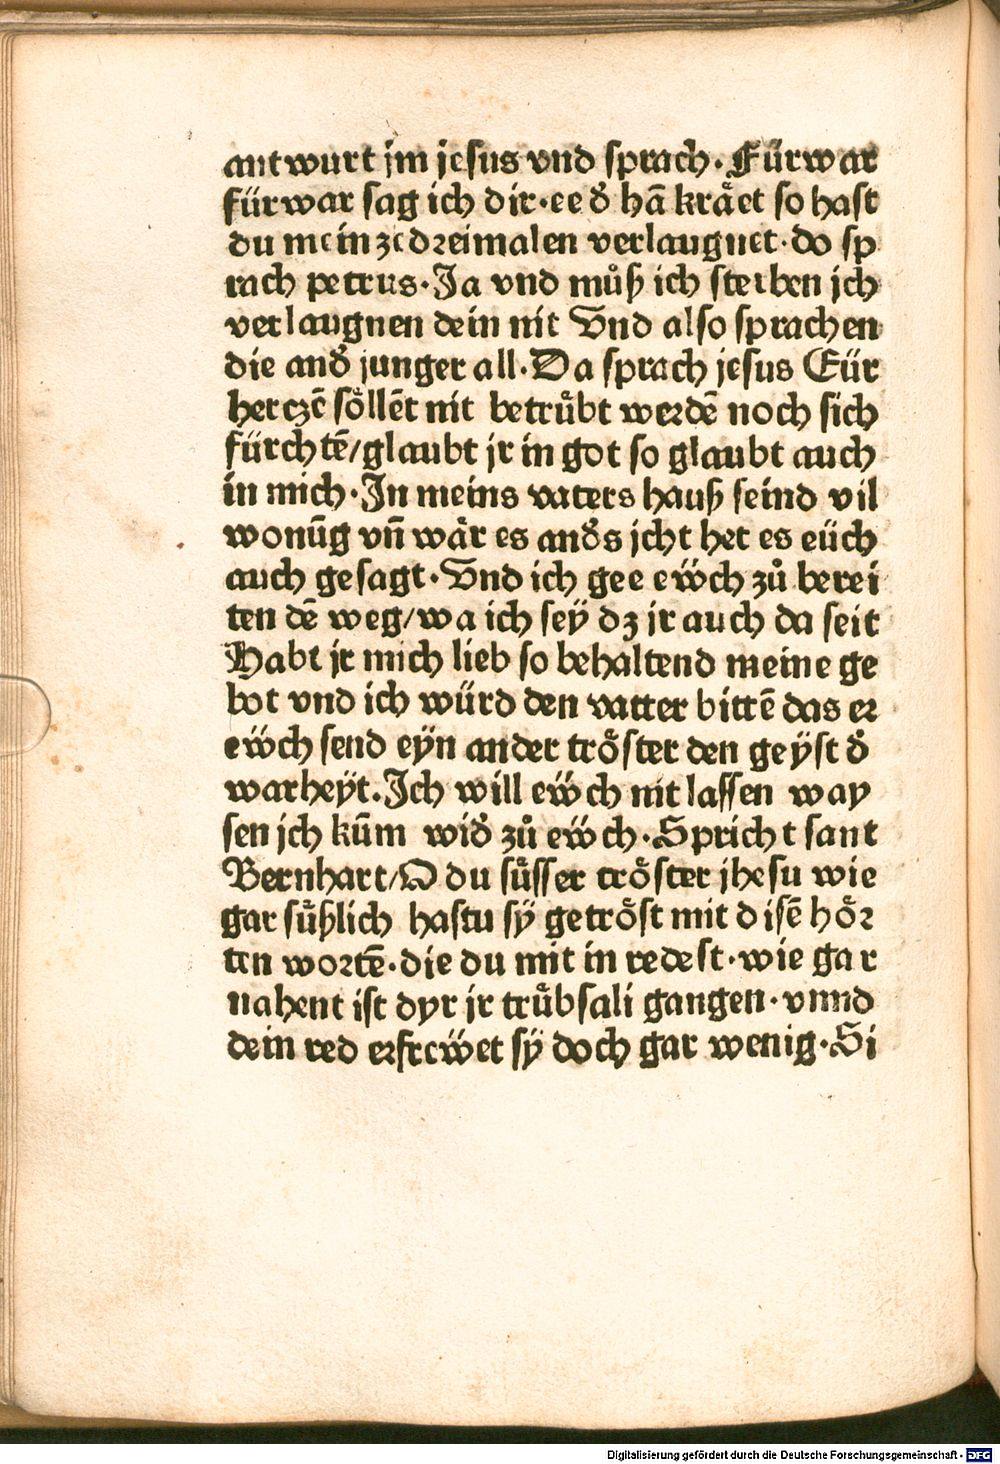 antwurt jm jesus vnd sprach. Fürwar
fürwar sag ich dir. ee d̕ hā kräet so hast
du mein ze dreimalen verlaugnet. do sp
rach petrus. Ja vnd můß ich sterben jch
verlaugnen dein nit Vnd also sprachen
die and̕ junger all. Da sprach jesus Eür
herczē söllēt nit betrübt werdē noch sich
fürchtē/ glaubt jr in got so glaubt auch
in mich. In meins vaters hauß seind vil
wonūg vn̄ wär es and̕s jcht het es eüch
auch gesagt. Vnd ich gee eẅch zů berei
ten dē weg/ wa ich seÿ dz jr auch da seit
Habt jr mich lieb so behaltend meine ge
bot vnd ich würd den vatter bittē das er
eẅch send eÿn ander tröster den geÿst d̕
warheÿt. Ich will eẅch nit lassen way
sen jch kūm wid̕ zů eẅch. Spricht sant
Bernhart/ O du süsser tröster jhesu wie
gar süßlich hastu sÿ getröst mit disē hör
ten wortē. die du mit in redest. wie gar
nahent ist dyr jr trübsali gangen. vnnd
dein red erfreẅet sÿ doch gar wenig. Si
Digitalisierung gefördert durch die Deutsche Forschungsgemeinschaft - DFG